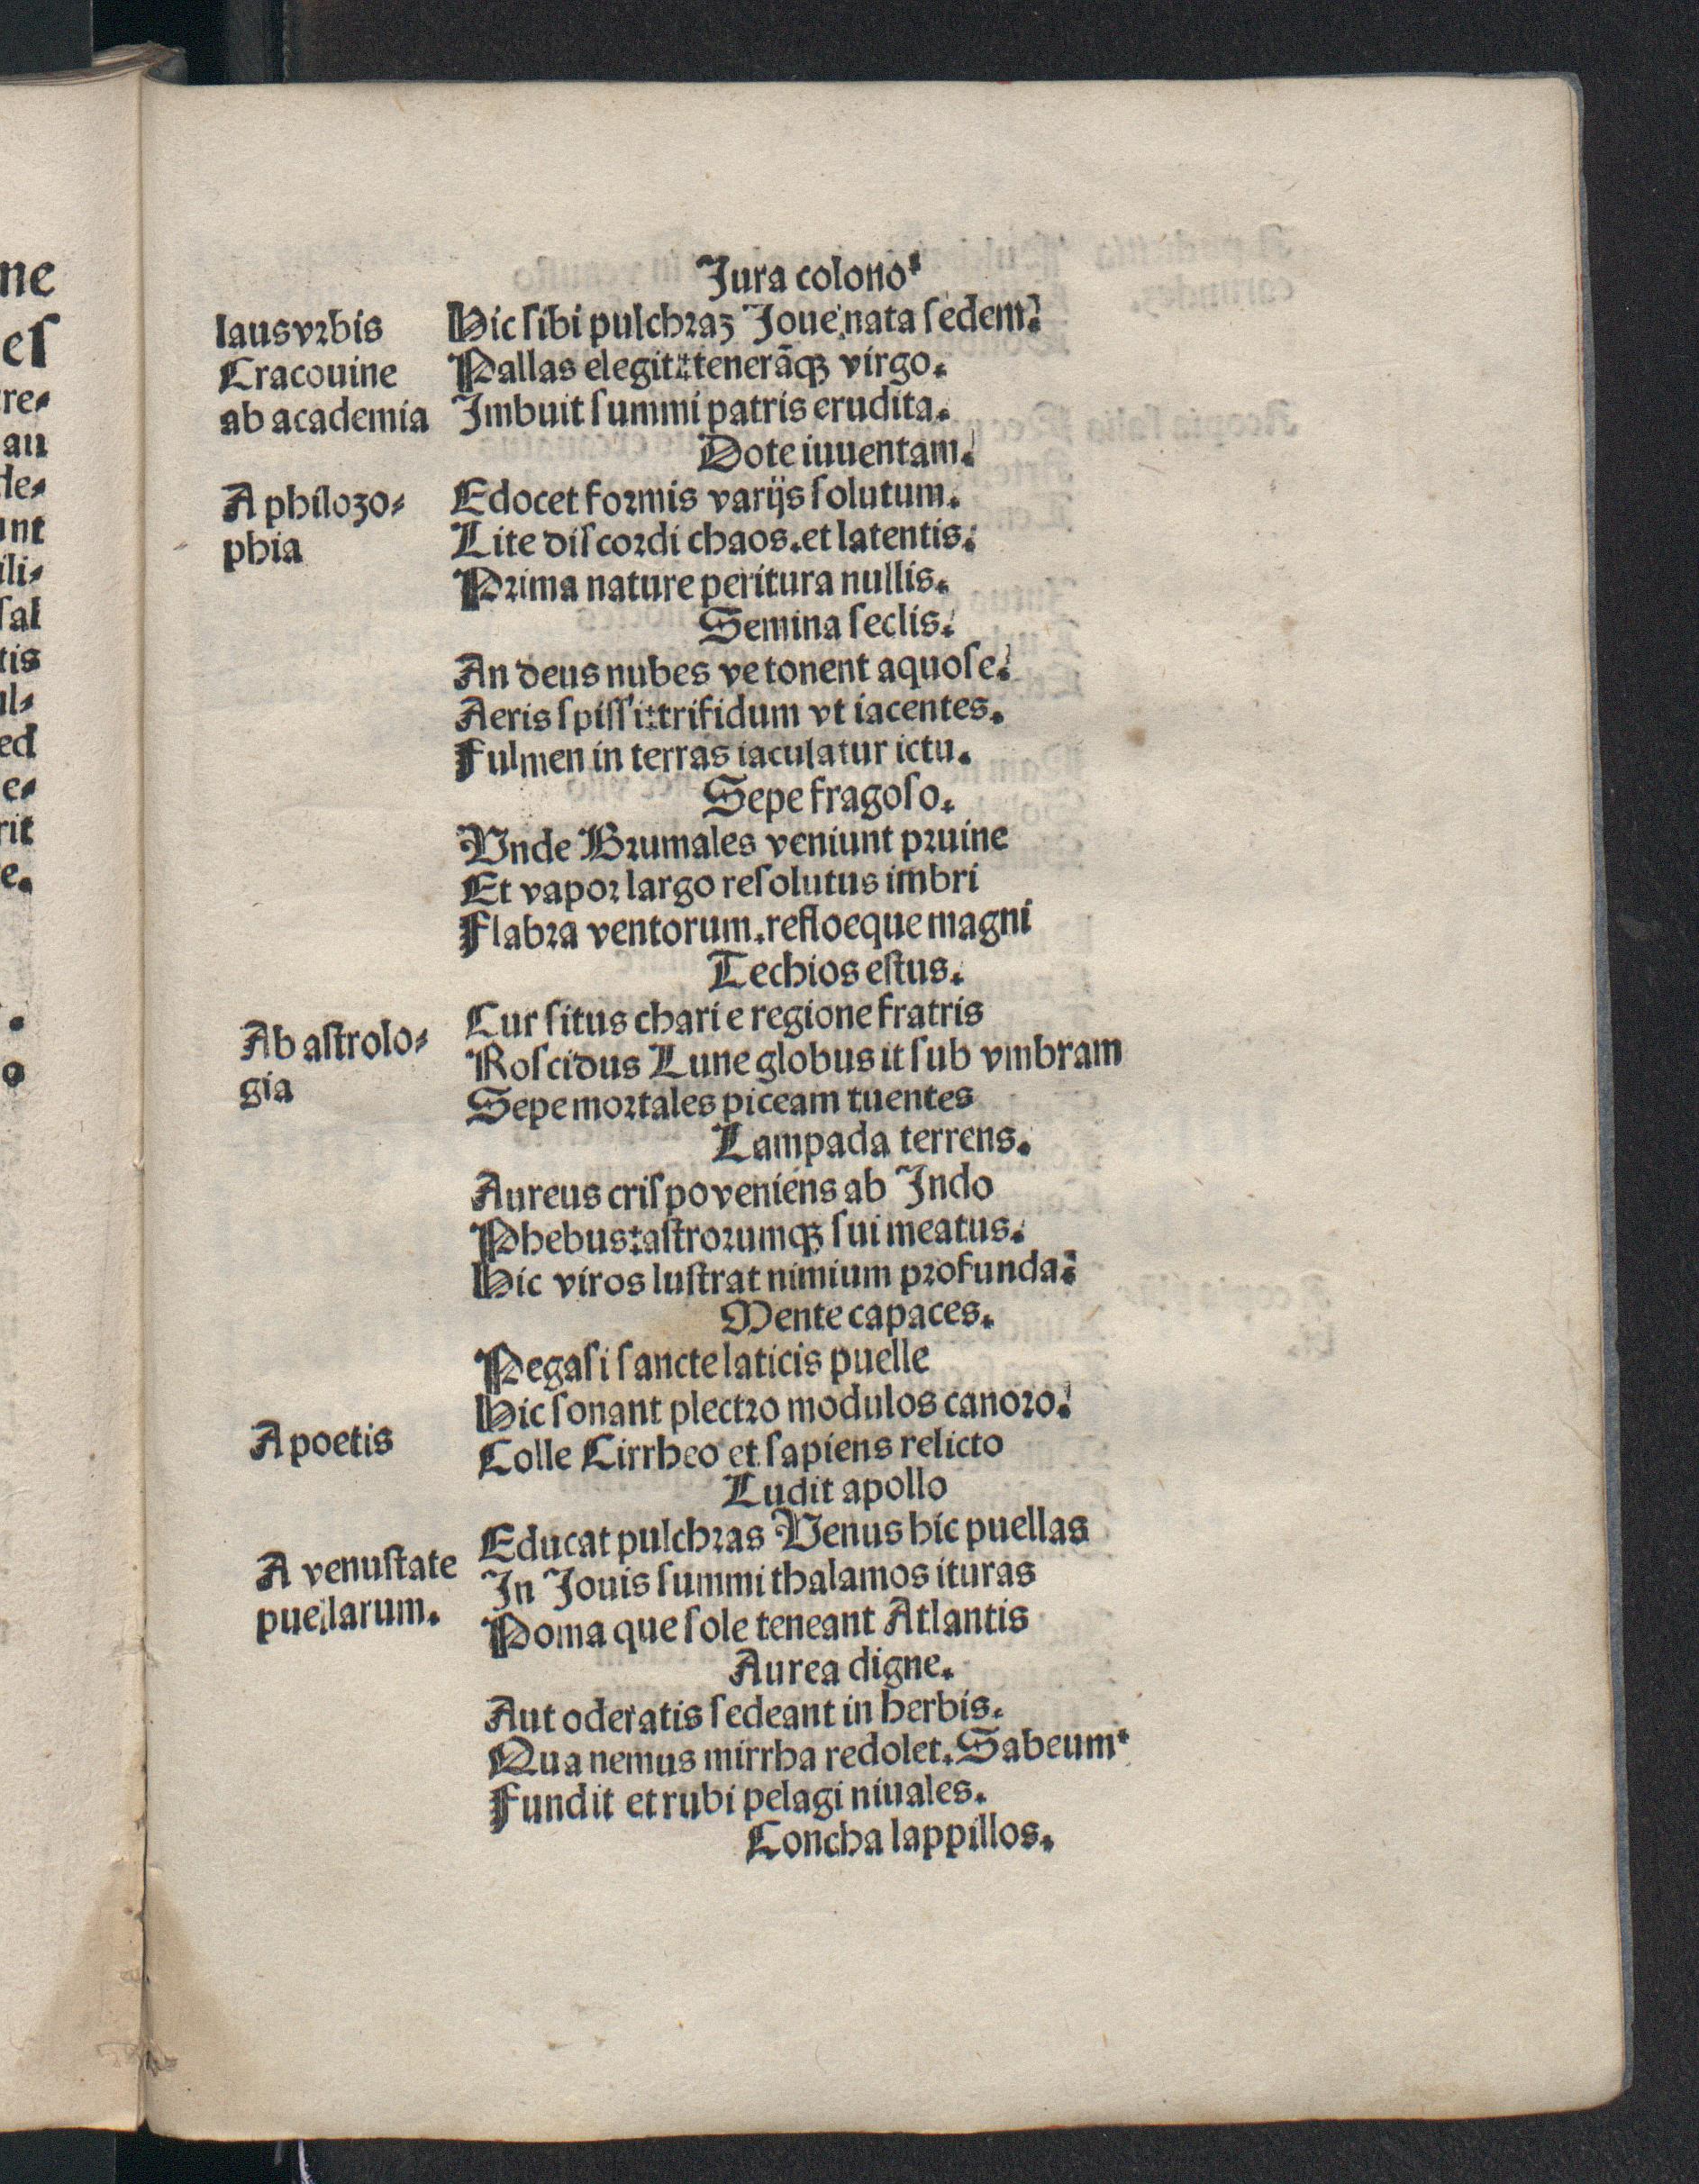 Jura colono
laus vrbis
Cracouine
ab academia
Hic sibi pulchraꝫ Joue nata sedem.
Pallas elegit: tenerāqꝫ virgo.
Imbuit summi patris erudita.
Dote iuuentam.
A philozo-
phia
Edocet formis varijs solutum.
Lite discordi chaos. et latentis.
Prima nature peritura nullis.
Semina seclis.
An deus nubes ve tonent aquose.
Aeris spissi: trifidum vt iacentes.
Fulmen in terras iaculatur ictu.
Sepe fragoso.
Unde Brumales veniunt pruine
Et vapor largo resolutus imbri
Flabra ventorum. refloeque magni
Techios estus.
Ab astrolo-
gia
Cur situs chari e regione fratris
Roscidus Lune globus it sub vmbram
Sepe mortales piceam tuentes
Lampada terrens.
Aureus crispo veniens ab Indo
Phebus: astrorumqꝫ sui meatus.
Hic viros lustrat nimium profunda.
Mente capaces.
A poetis
Pegasi sancte laticis puelle
Hic sonant plectro modulos canoro.
Colle Cirrheo et sapiens relicto
Ludit apollo
A venustate
puellarum.
Educat pulchras Venus hic puellas
In Jouis summi thalamos ituras
Poma que sole teneant Atlantis
Aurea digne.
Aut oderatis sedeant in herbis.
Qua nemus mirrha redolet. Sabeum
Fundit et rubi pelagi niuales.
Concha lappillos.